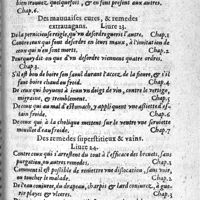 bien trouuez, quelquefois, & en sont presens aux autres.
Chap.6.
Des mauuaises cures, & remedes
extrauagans. Liure 23.
De la pernicieuse regle, qu'un desordre guerit l'autre. Chap.1
Contre ceux qui font desordre en leurs maux, à l'imitation de
ceux qui n'en font morts. Chap.2
Pourquoy dit-on qu'il d'un desordre viennent quatre ordres.
Chap.3.
S'il est bon de boire son saoul durant l'acces de la fieure, & s'il
faut boire chaud ou froid. Chap.4
De ceux qui boyuent à ieun un doigt de vin, contre le vertige,
migraine, & grus iennent. Chap.5
De ceux qui au mal d'estomach, y appliquent vne assiette d'es-
tain froide. Chap.6
De ceux qui à la cholique mettent sur le ventre vne seruiette
moüillee d'eau froide. Chap.7
Des remedes superstitieux & vains.
Liure 24.
Contre ceux qui s'arrestent du tout à l'efficace des breuets, sans
purgation, ou saignee. Chap.1
Comment il est possible de remettre vne dislocation, sans voir,
ou toucher le malade. Chap.2
De l'eau coniuree, du drapeau, charpie & lard coniurez, à gue-
rir playes & vlceres. Chap.3